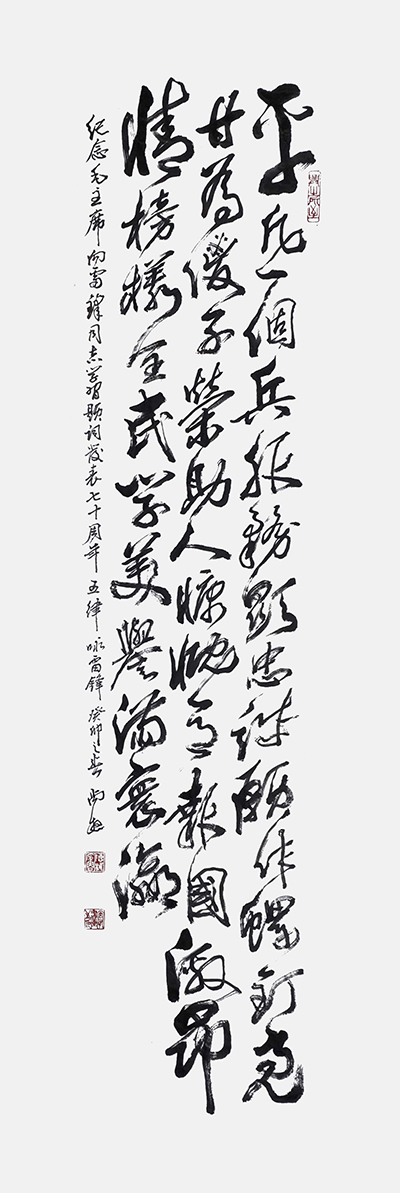 平凡一個兵服務顯忠誠願作螺釘亮
甘為傻子榮助人慷慨事報國激昂
情榜樣全民學美譽滿寰瀛
纪念毛主席向雷鋒同志学習题词发表七十周年 五律 咏雷鋒 癸卯之春 尚